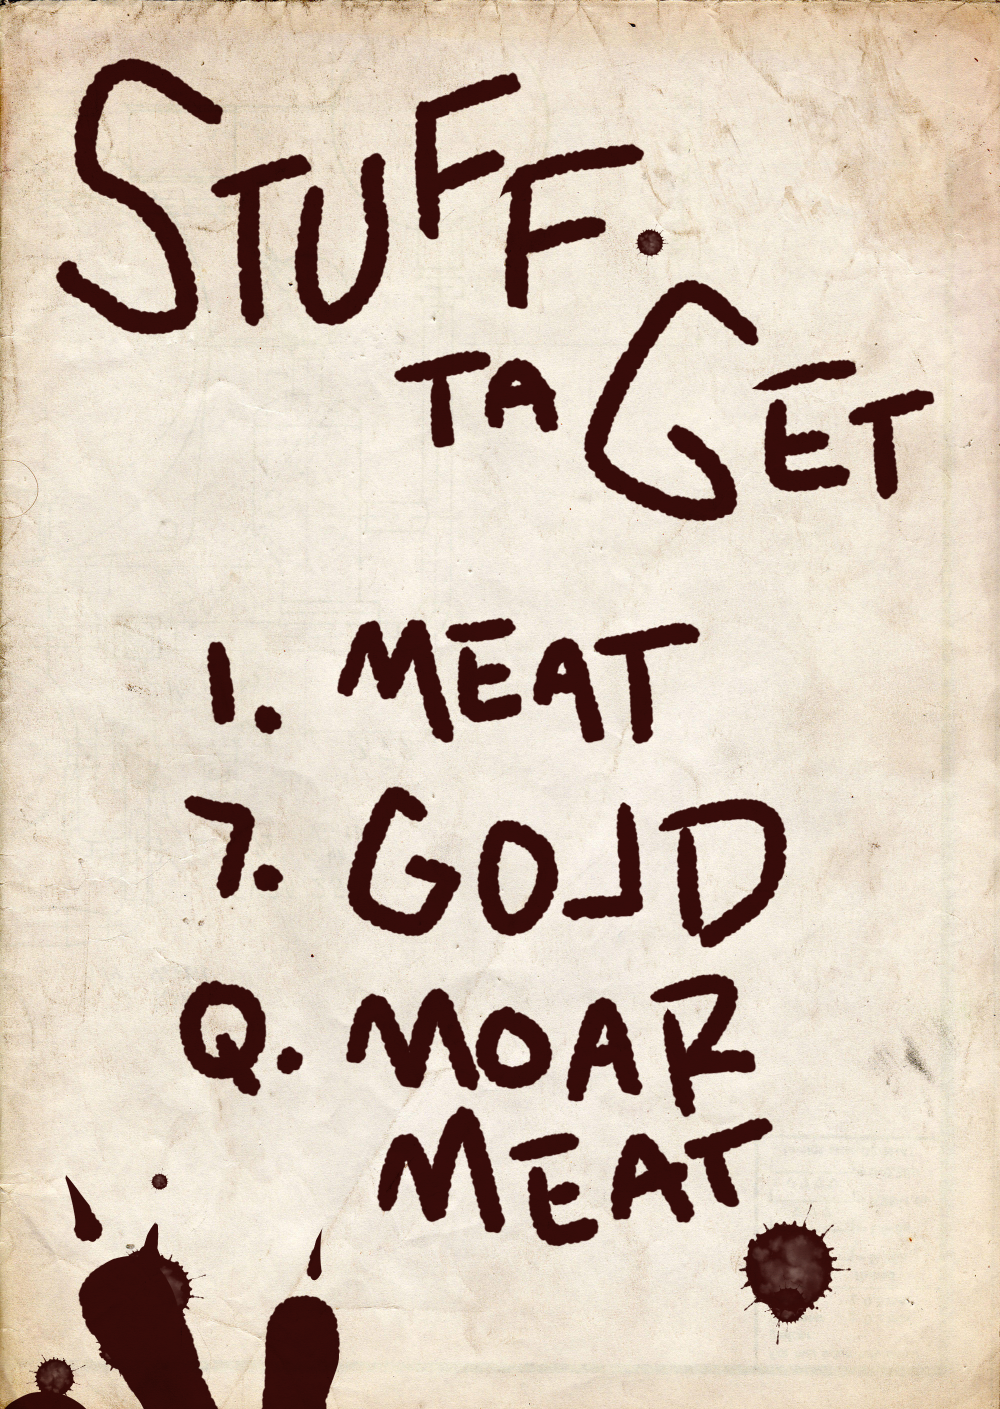 STUFF
TA GET
1. MEAT
7. GOLD
Q. MOAR
MEAT